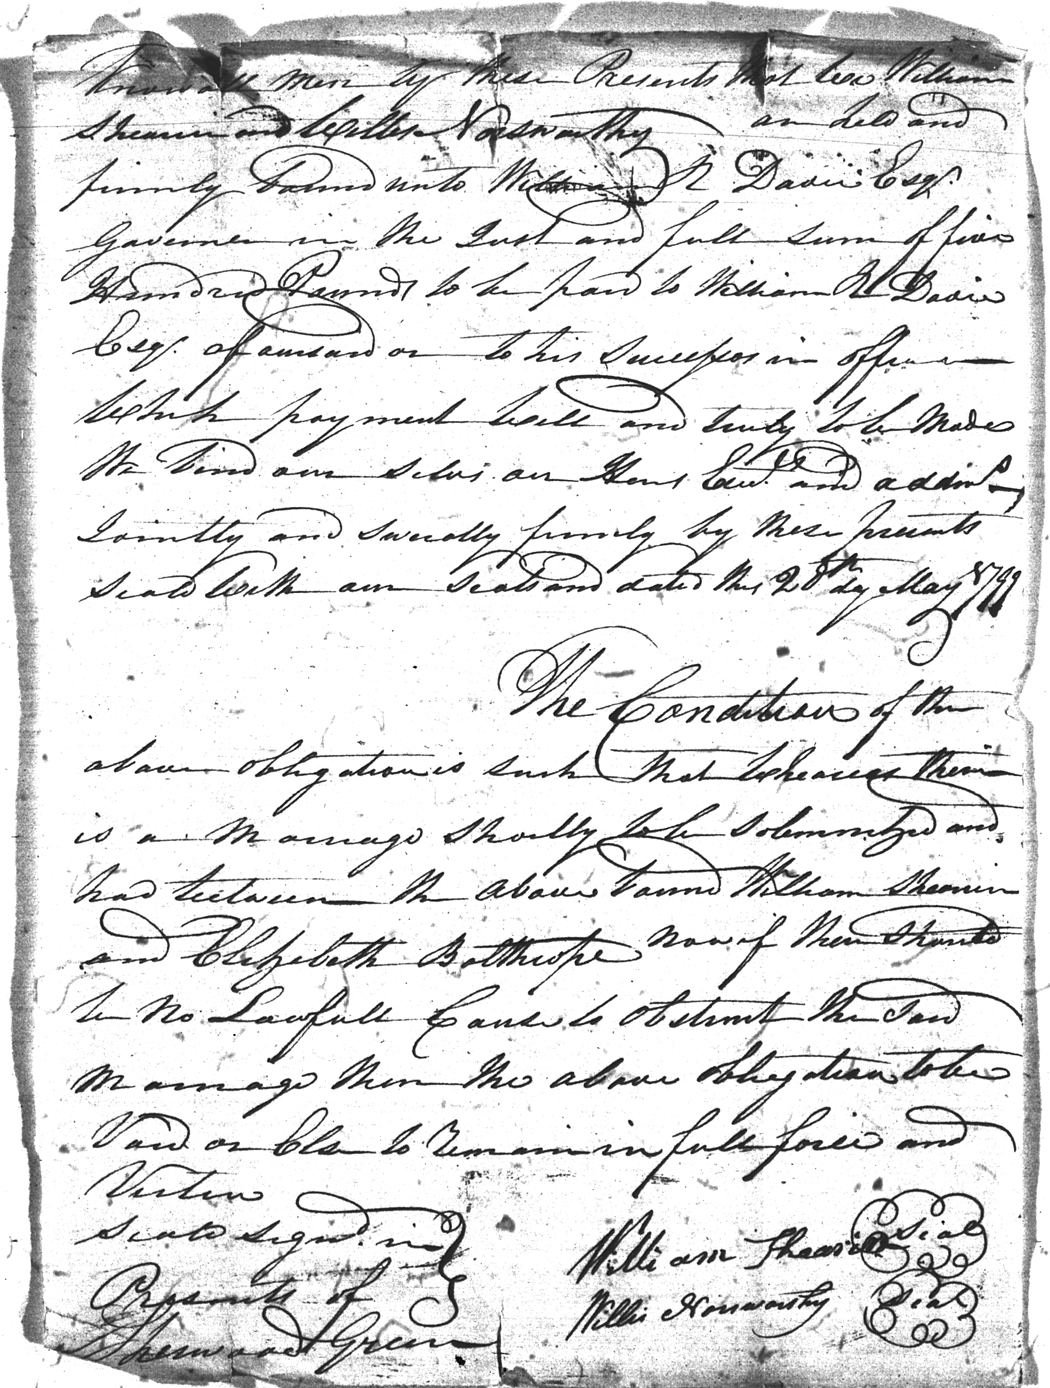 Know all men by these Presents that we William
Shearin and Willis Norsworthy are held and
firmly bound unto William R Davie Esqr.
Governer in the Just and full sum of five
Hundred Pounds to be paid to William R Davie
Esqr. aforesaid or to his Successor in office
Which payment well and truly to be Made
We bind our selves our Heirs Exrs. and admrs.
Jointly and severally firmly by these presents
Seald With our Seals and dated this 28th dy May 1799
The Condition of the
above obligation is such that whereas their
is a Marriage Shortly to be Solemnized and
had between the above bound William Shearin
and Elizebeth Bolthrope now if there should
be No Lawfull Cause to obstruct the said
Marriage then the above obligation to be
Void or Else to remain in full force and
Vertue
Seald Signd. in
Presents of
Sherwood Green
William Shearin Seal
Willis Norsworthy Seal